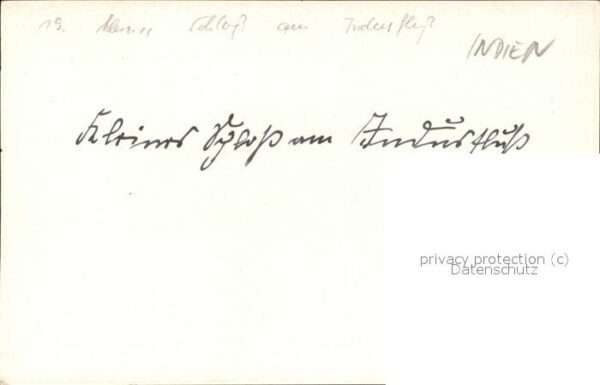 19. kleines Schloß am Indusfluß
INDIEN
Kleines Schloß am Indusfluß
privacy protection (c)
Datenschutz